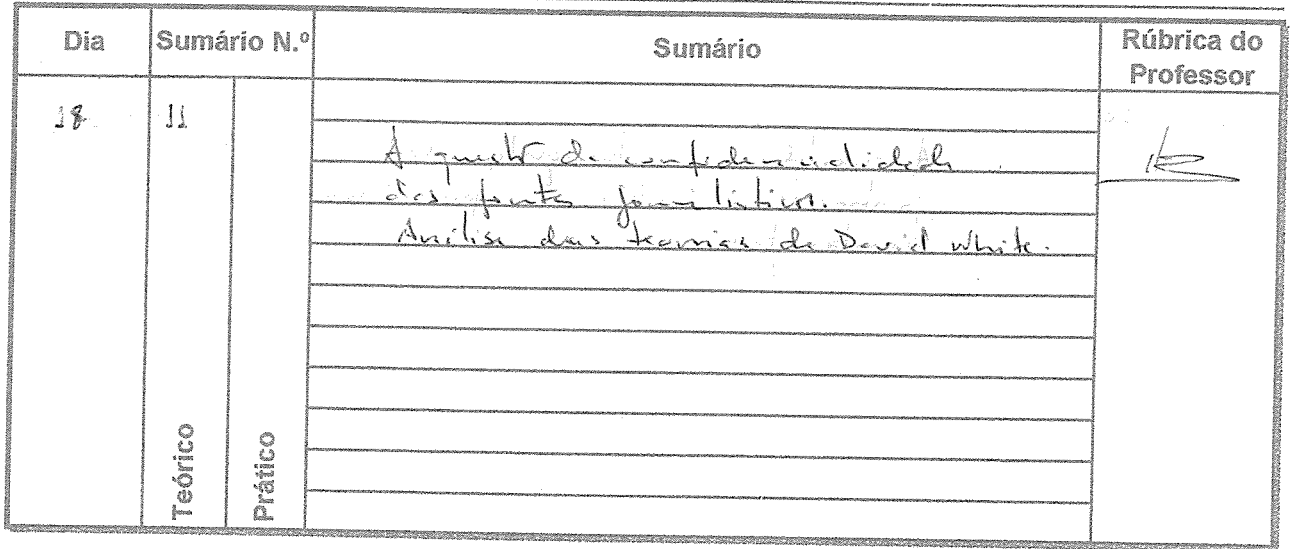 Dia Sumário N.º Sumário Rúbrica do Professor
18 11
A questão da confidencialidade
das fontes jornalísticas.
Análise das teorias de David White.
Teórico
Prático